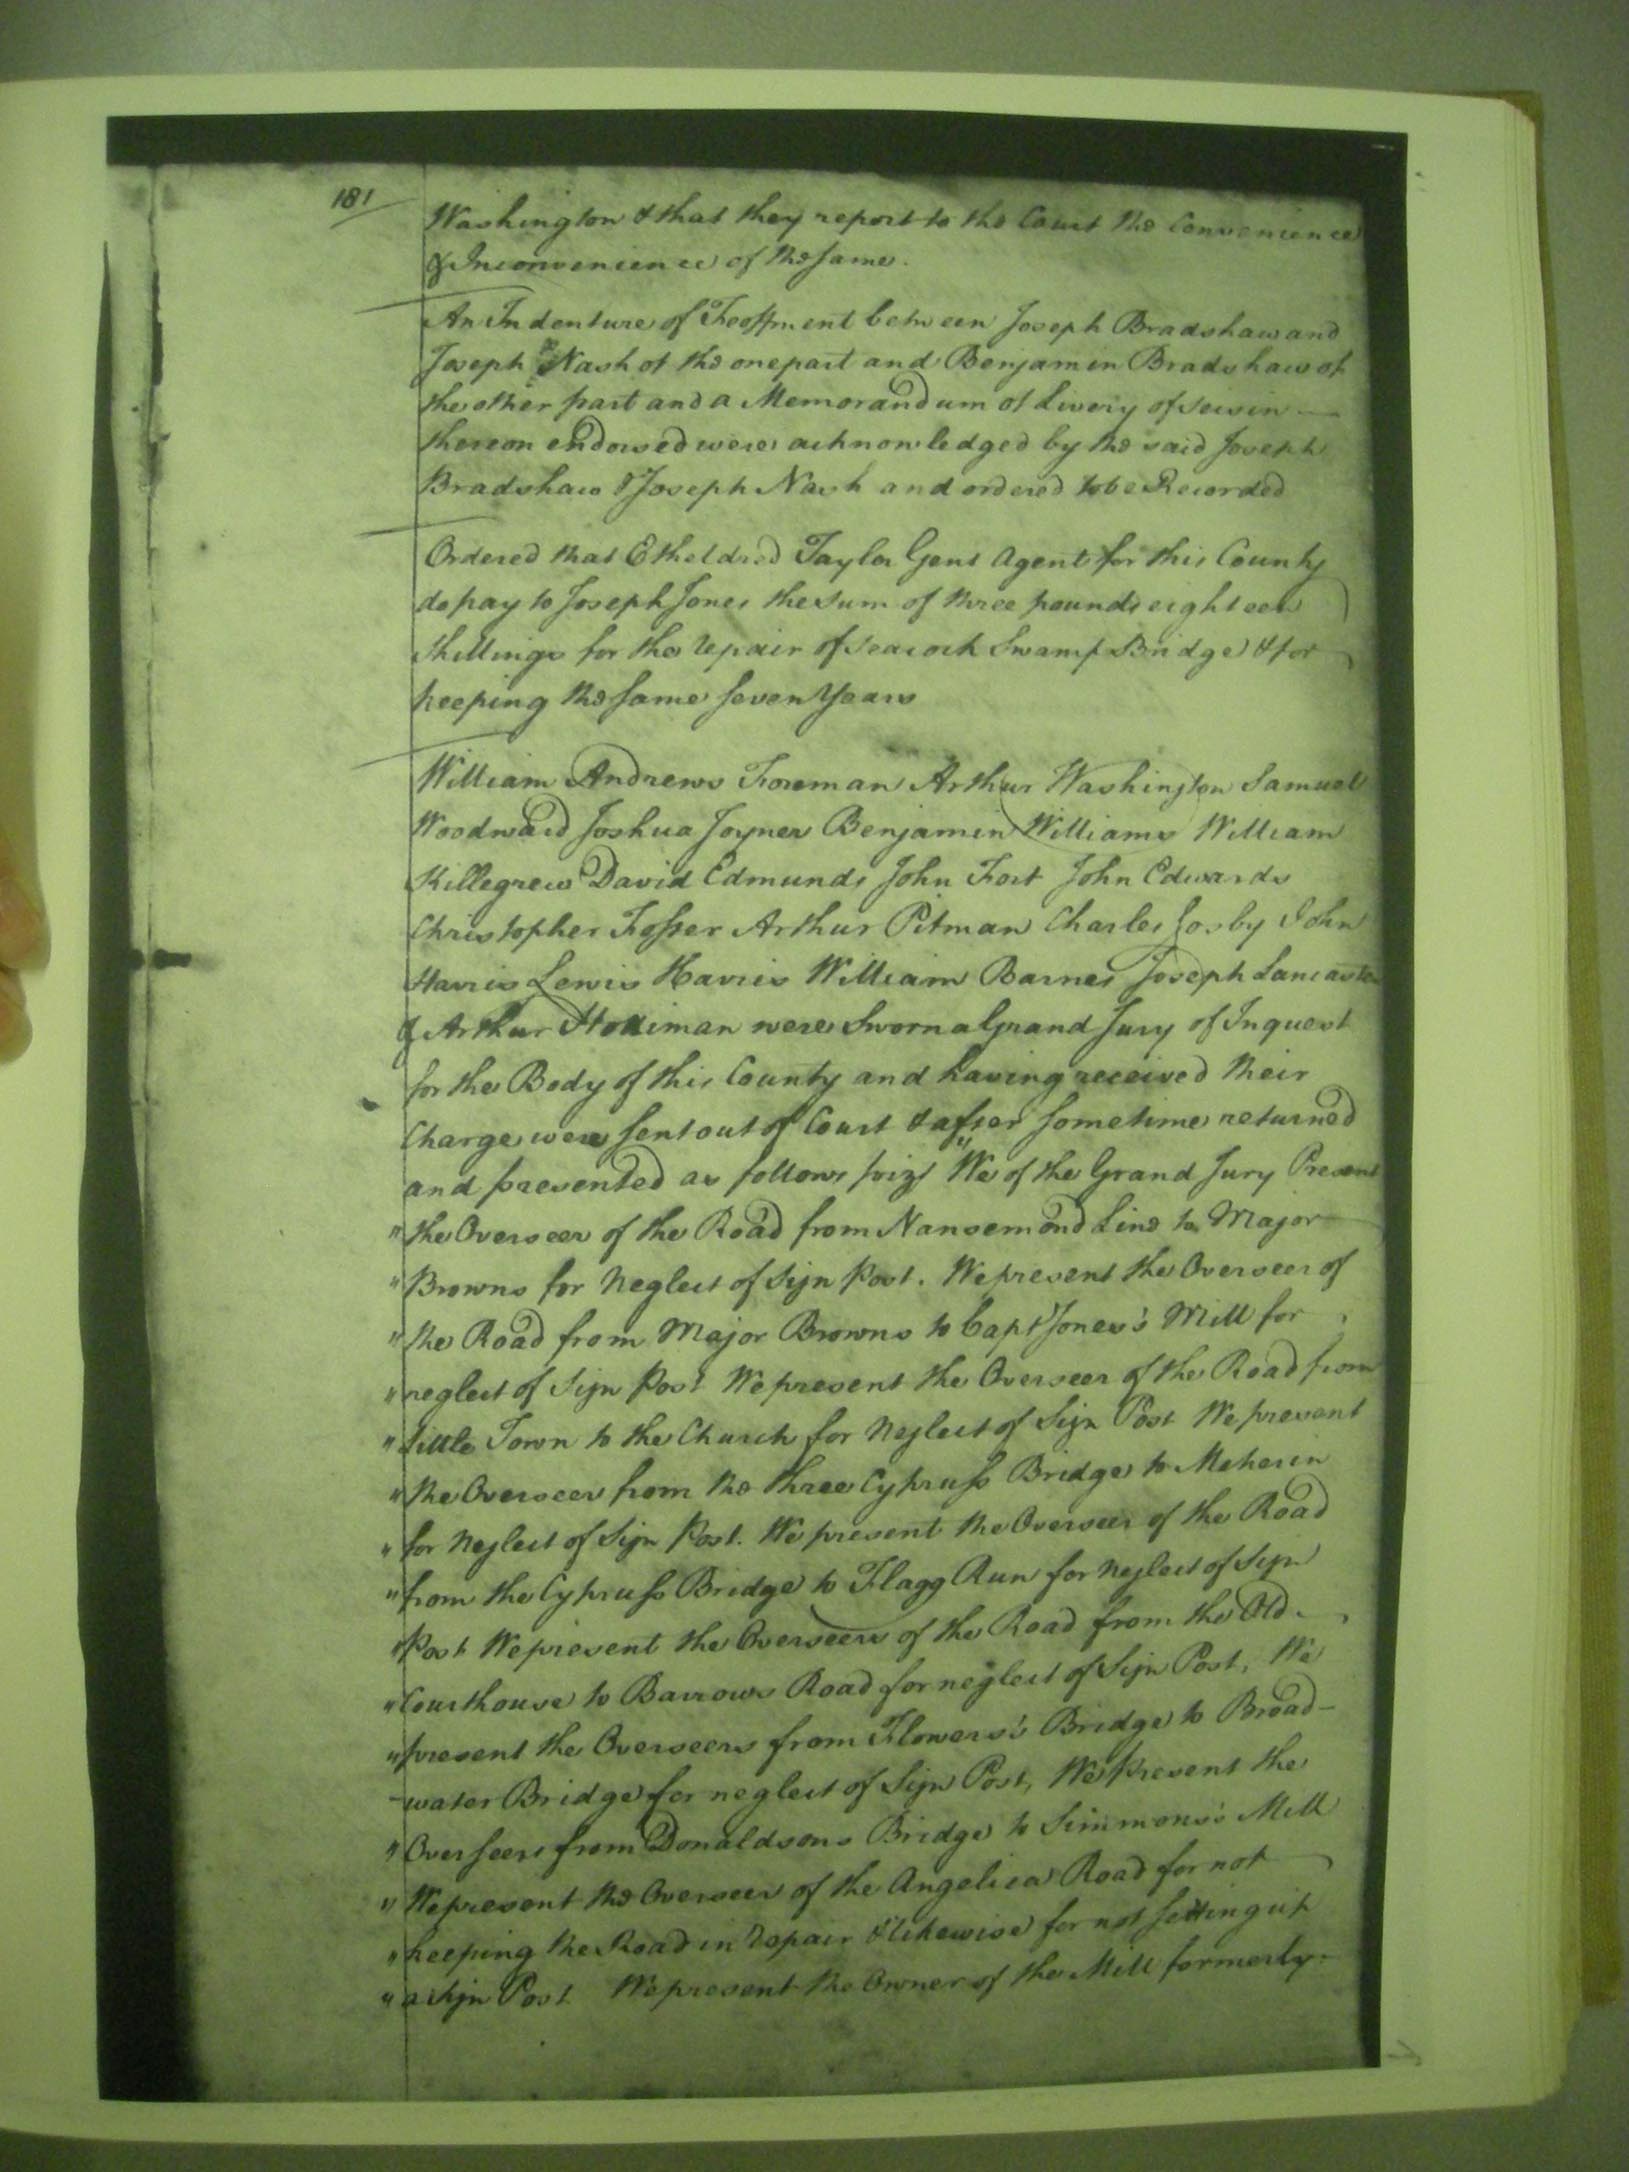 181
Washington & that they report to the Court the Convenience
& Inconvenience of the same.
An Indenture of Feoffment between Joseph Bradshaw and
Joseph Nash of the one part and Benjamin Bradshaw of
the other part and a Memorandum of Livery of seisin
thereon endorsed were acknowledged by the said Joseph
Bradshaw & Joseph Nash and ordered to be Recorded
Ordered that Etheldred Taylor Gent Agent for this County
do pay to Joseph Jones the sum of three pounds eighteen
shillings for the repair of Seacock Swamp Bridge & for
keeping the same seven Years
William Andrews Foreman Arthur Washington Samuel
Woodward Joshua Joyner Benjamin Williams William
Killegrew David Edmunds John Fort John Edwards
Christopher Arthur Pitman Charles John
Harris Lewis Harris William Barnes Joseph Lancaster
& Arthur were Sworn a Grand Jury of Inquest
for the Body of this County and having received their
Charge were sent out of Court & after sometime returned
and presented as follows "We of the Grand Jury Present
" the Overseer of the Road from Nansemond Line to Major
" Browns for Neglect of Sign Post. We present the Overseer of
" the Road from Major Browns to Capt Jones's Mill for
" neglect of Sign Post We present the Overseer of the Road from
" Little Town to the Church for Neglect of Sign Post We present
" the Overseer from the three Cypruss Bridge to Meherin
" for Neglect of Sign Post. We present the Overseer of the Road
" from the Cypruss Bridge to Flagg Run for Neglect of Sign
" Post We present the Overseers of the Road from the Old
" Courthouse to Barrows Road for neglect of Sign Post, We
" present the Overseers from Flowers's Bridge to Broad-
-water Bridge for neglect of Sign Post, We present the
" Overseers from Donaldsons Bridge to Simmons's Mill
" We present the Overseer of the Angelica Road for not
" keeping the Road in repair & likewise for not setting up
" a Sign Post We present the Owner of the Mill formerly